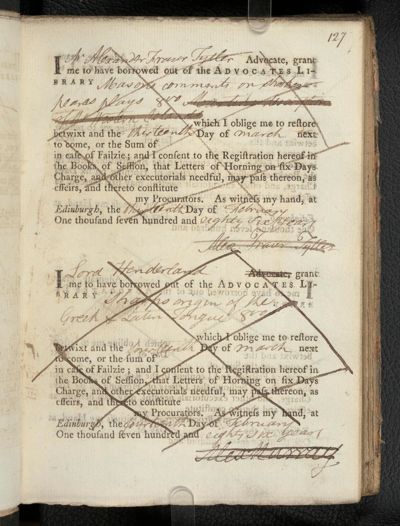 127
I Mr. Alexander Fraser Tytler Advocate, grant
me to have borrowed out of the ADVOCATES LI-
BRARY Masons comments on Shakes-
peares plays 8vo
which I oblige me to restore
betwixt and the thirteenth Day of March next
to come, or the Sum of
in case of Failzie; and I consent to the Registration hereof in
the Books of Session, that Letters of Horning on six Days
Charge, and other executorials needful, may pass thereon, as
effeirs, and thereto constitute
my Procurators. As witness my hand, at
Edinburgh, the thirteenth Day of February
One thousand seven hundred and eighty six years
Alex Fraser Tytler
I Lord Henderland Advocate, grant
me to have borrowed out of the ADVOCATES LI-
BRARY origin of the
Greek & Latin Tongue 8vo
which I oblige me to restore
betwixt and the Day of March next
to come, or the sum of
in case of Failzie; and I consent to the Registration hereof in
the Books of Session, that Letters of Horning on six Days
Charge, and other executorials needful, may pass thereon, as
effeirs, and thereto constitute
my Procurators. As witness my hand, at
Edinburgh, the fourteenth Day of February
One thousand seven hundred and eighty six years
Alex Murray